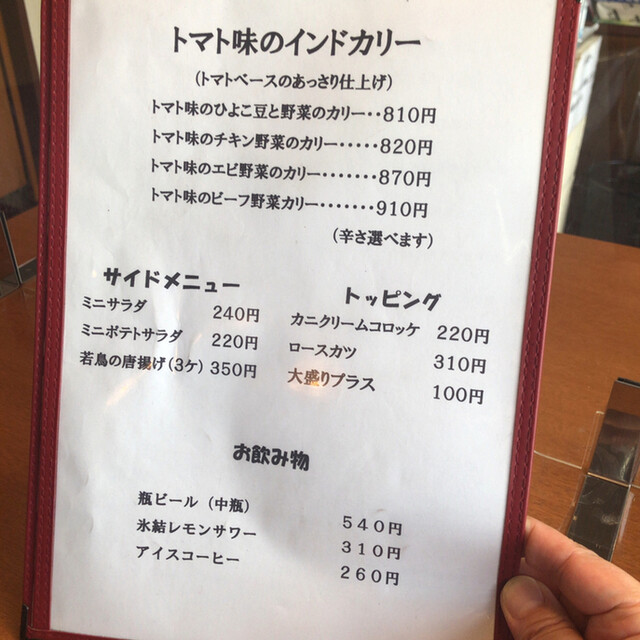 トマト味のインドカリー
(トマトベースのあっさり仕上げ)
トマト味のひよこ豆と野菜のカリー・・810円
トマト味のチキン野菜のカリー・・・・・820円
トマト味のエビ野菜のカリー・・・・・・・870円
トマト味のビーフ野菜カリー・・・・・・・910円
(辛さ選べます)
サイドメニュー
ミニサラダ 240円
ミニポテトサラダ 220円
若鳥の唐揚げ(3ケ) 350円
トッピング
カニクリームコロッケ 220円
ロースカツ 310円
大盛りプラス 100円
お飲み物
瓶ビール (中瓶) 540円
氷結レモンサワー 310円
アイスコーヒー 260円